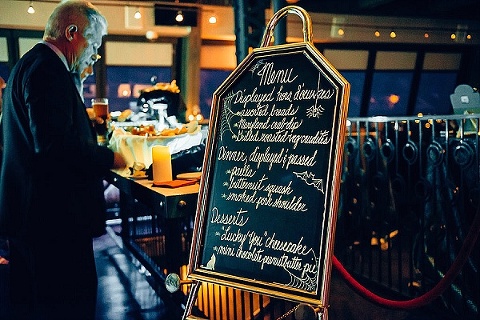 Menu
Displayed hors d'oeuvres
~assorted breads
~Maryland crab dip
~Grilled roasted veg crudites
Dinner, displayed & passed
~paella
~butternut squash
~smoked pork shoulder
Desserts
~"Lucky You" cheesecake
~mini chocolate peanutbutter pie